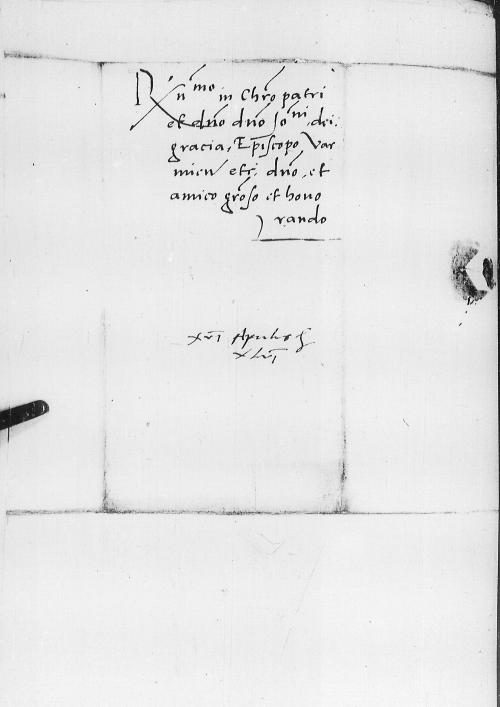 Rn̄mo in Chr̄o patri
et dn̄o dn̄o Jo ni dei
gracia, Ep̄iscopo Var
mien etc. dn̄o, et
amico gr̄oso et hono
rando
XVI Aprilis
XLVI